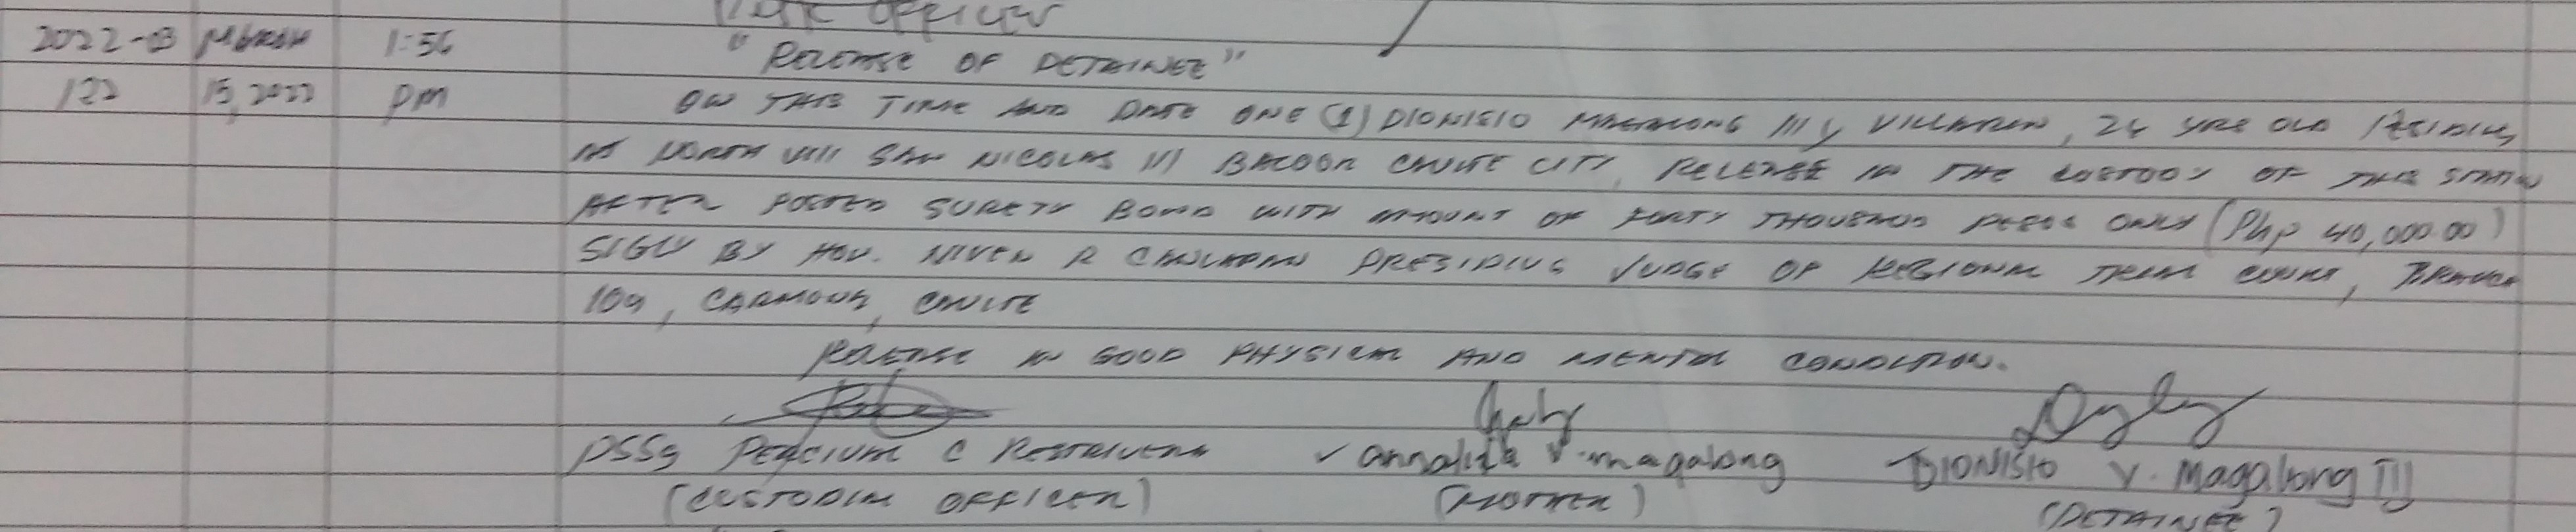 OFFICER
2022-03 MARCH 1:56 "RELEASE OF DETAINEE"
122 15, 2022 pm ON THIS TIME AND DATE ONE (1) DIONISIO MAGALONG III y VILLARIN, 24 YRS OLD RESIDING
AT NORTH VILL SAN NICOLAS III BACOOR CAVITE CITY, RELEASE IN THE CUSTODY OF THIS STATION
AFTER POSTED SURETY BOND WITH AMOUNT OF FORTY THOUSAND PESOS ONLY (Php 40,000.00)
SIGN BY HON. NIVEN R CANLAPAN PRESIDING JUDGE OF REGIONAL TRIAL COURT, BRANCH
109, CARMONA, CAVITE
RELEASE IN GOOD PHYSICAL AND MENTAL CONDITION.
PSSg PERCIVAL C ✓ annalita V. magalong DIONISIO V. Magalong III
(CUSTODIAL OFFICER) (MOTHER) (DETAINEE)